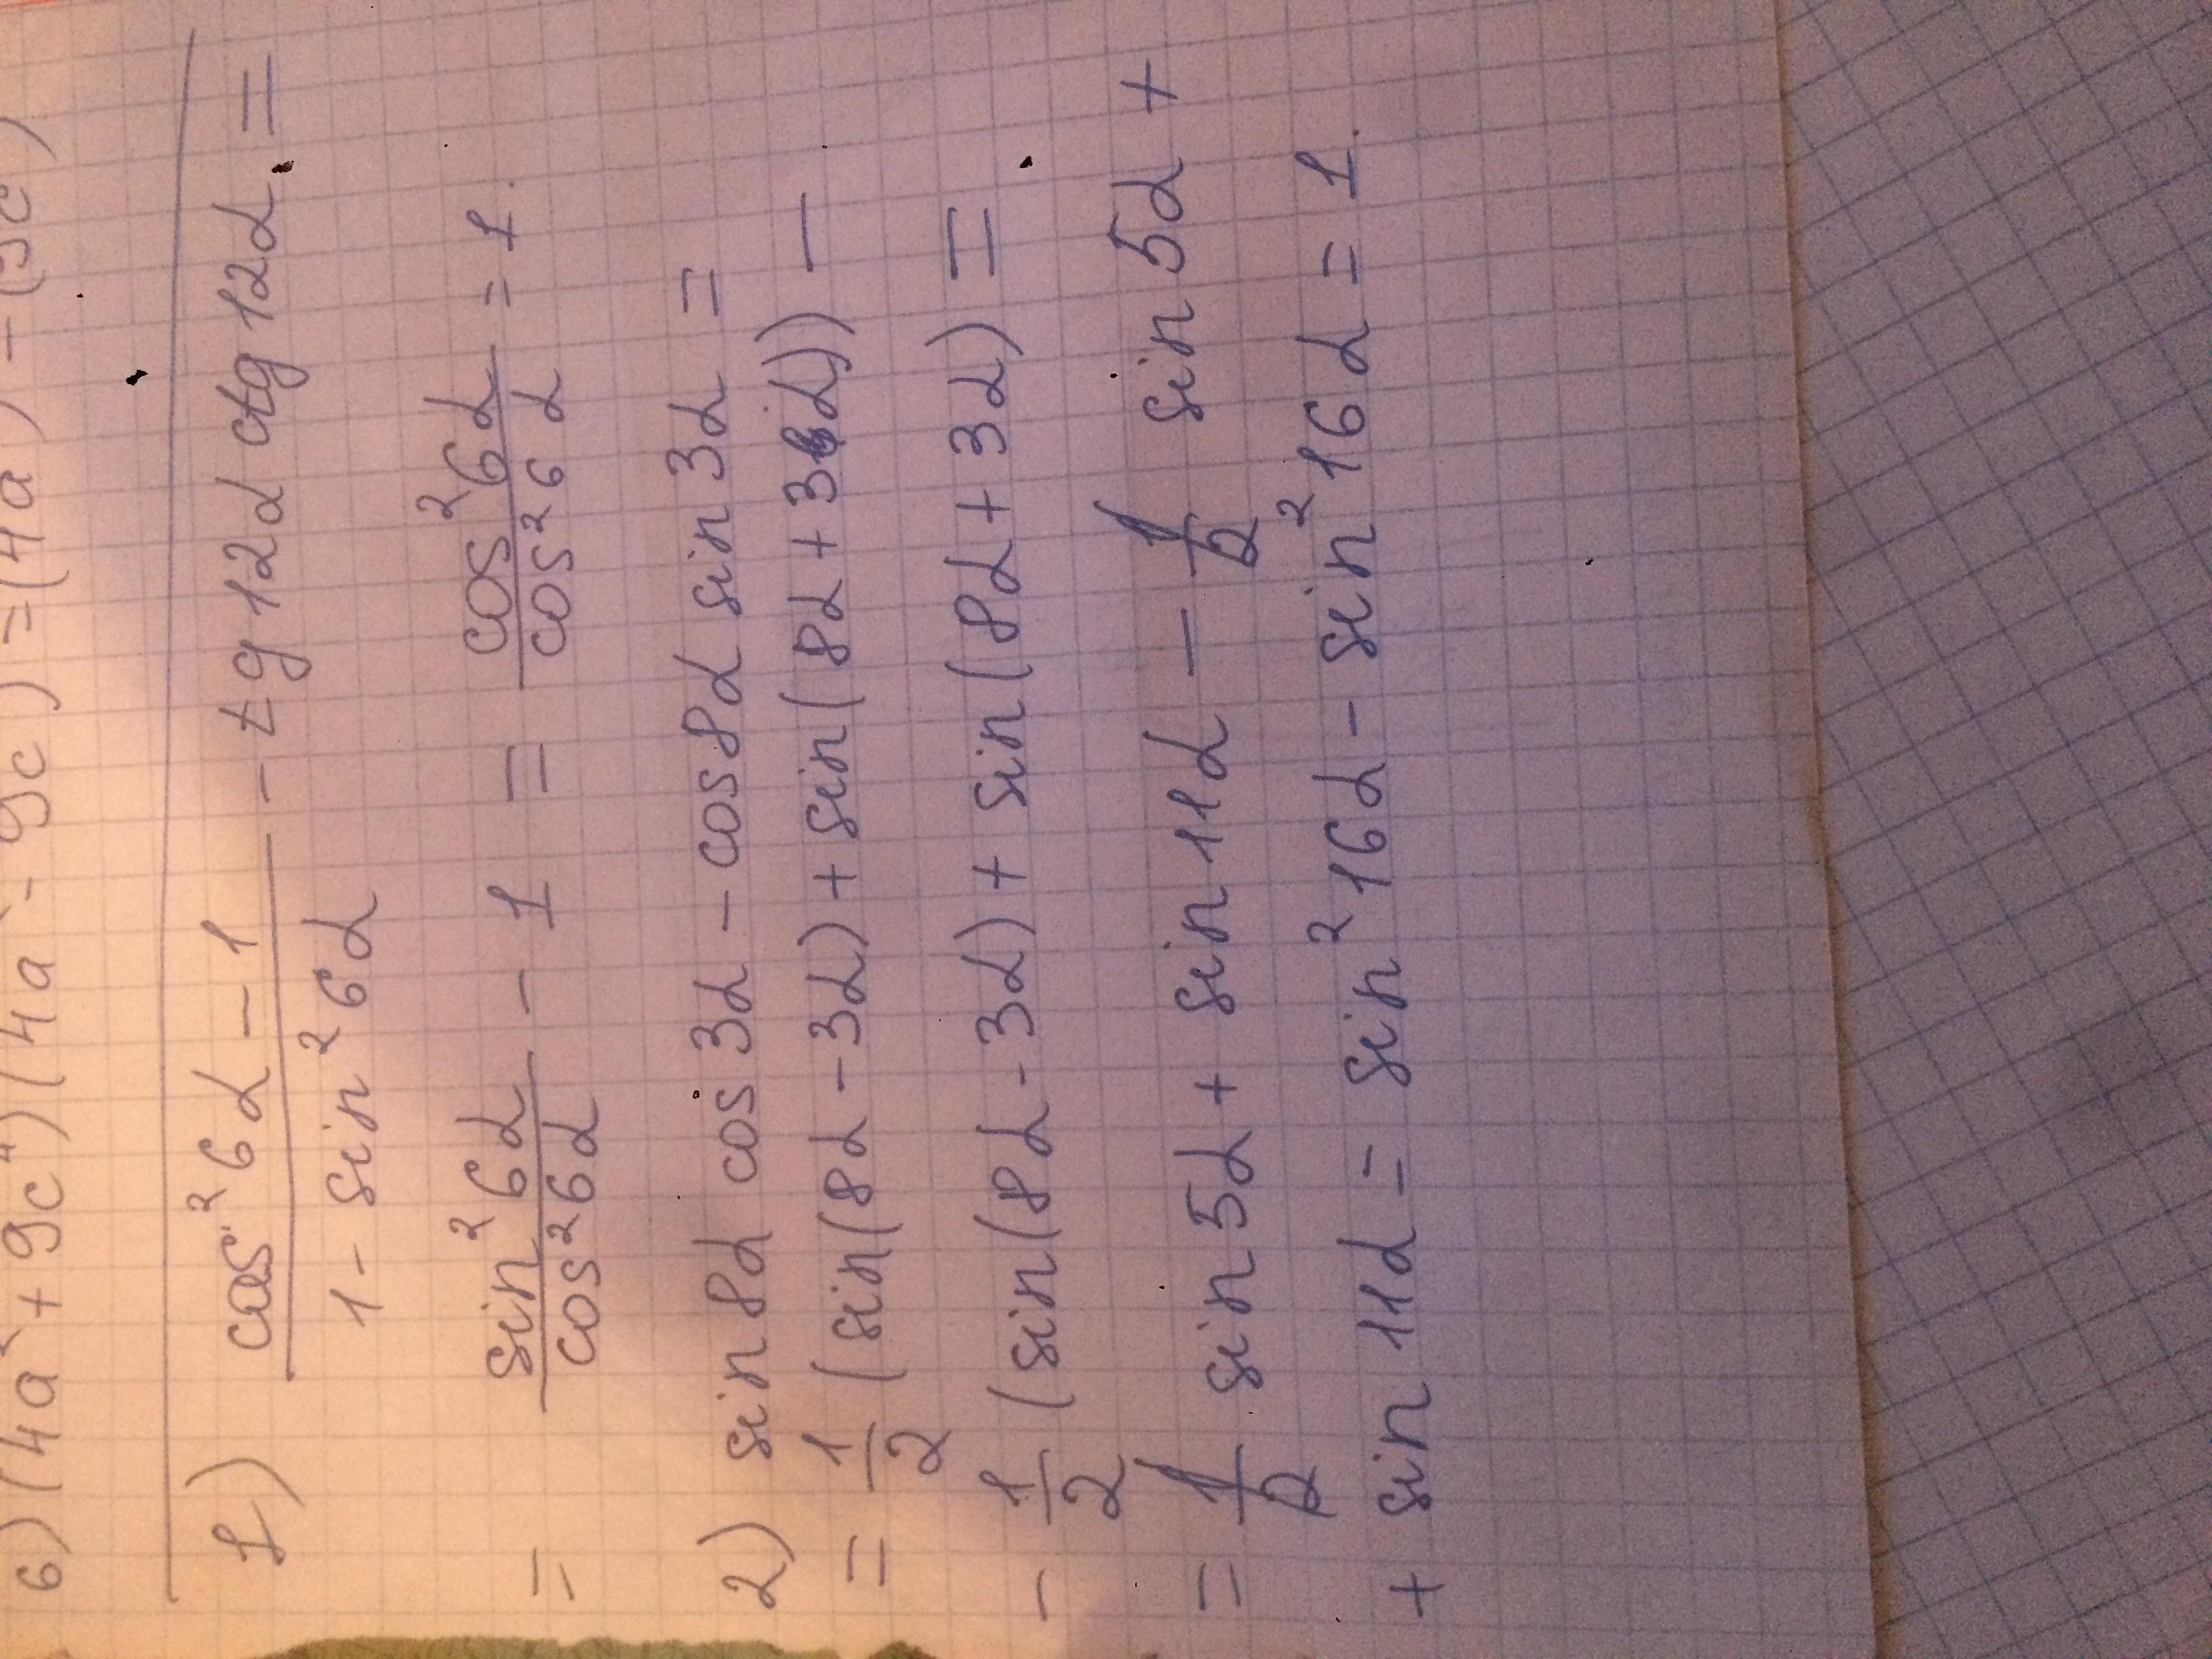 6) (4a² + 9c⁴)(4a² - 9c⁴) = (4a²)² - (9c
1) cos²6α - 1 / 1 - sin²6α - tg12α ctg12α =
= sin²6α / cos²6α - 1 = cos²6α / cos²6α = 1.
2) sin8α cos3α - cos8α sin3α =
= 1/2 (sin(8α - 3α) + sin(8α + 3α)) -
- 1/2 (sin(8α - 3α) + sin(8α + 3α) =
= 1/2 sin5α + sin11α - 1/2 sin5α +
+ sin11α = sin²16α - sin²16α = 1.